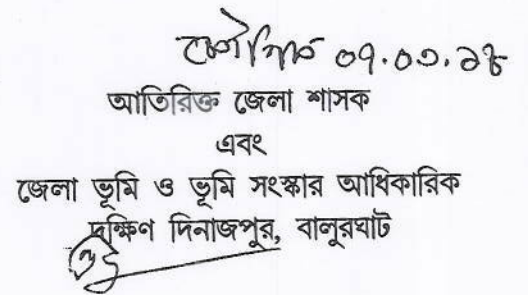 ০৭.০৩.১৮
আতিরিক্ত জেলা শাসক
এবং
জেলা ভূমি ও ভূমি সংস্কার আধিকারিক
দক্ষিণ দিনাজপুর, বালুরঘাট